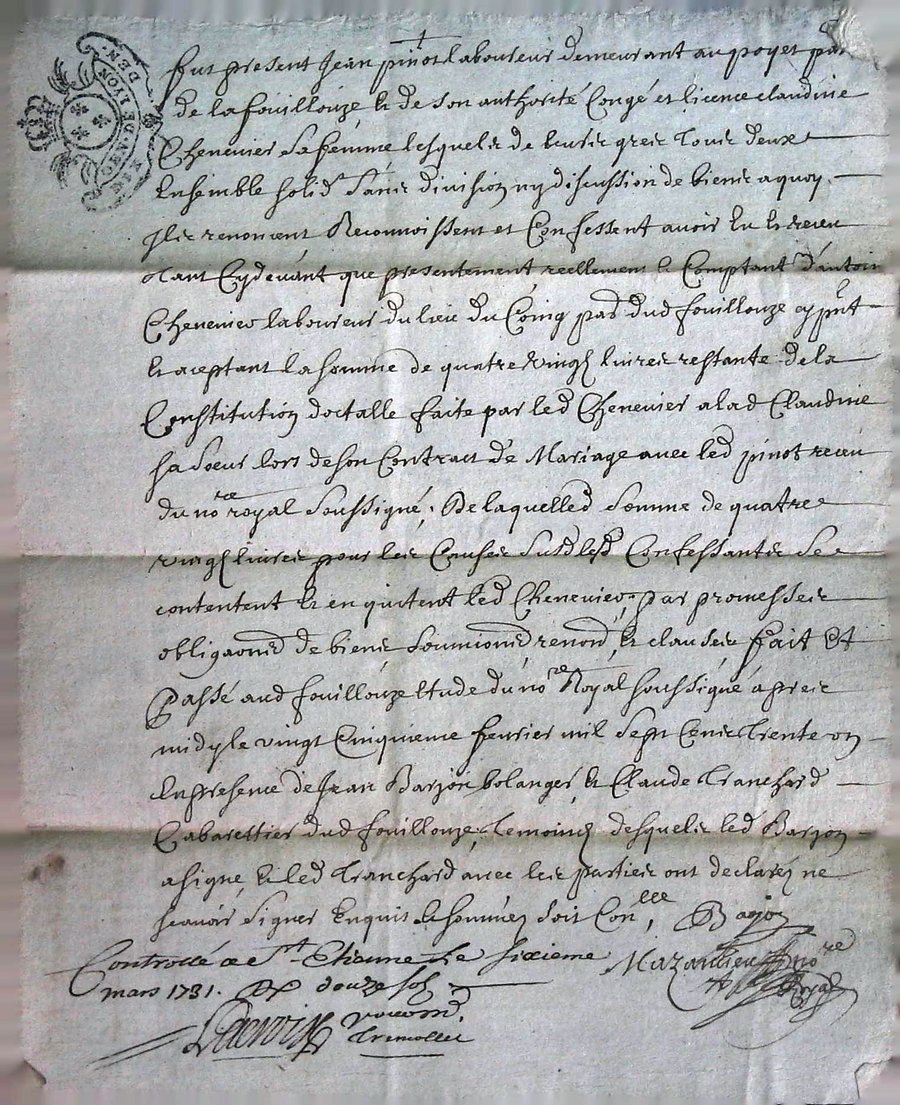 GEN. DE LYON
fut present Jean pinot laboureur demeurant au poyet par
de la fouillouze, et de son authorité Congé et licence claudine
Chenevier sa femme lesquels de leurs grés Tous deux
Ensemble solid. sans division ny discussion de biens a quoy
Ils renoncent Reconnoissent et Confessent avoir Eu et receu
tant Cydevant que presentement reellement et Comptant d'antoin
Chenevier laboureur du lieu du Coing par dud fouillouze cy pnt
et aceptant la somme de quatre vingt livres restante de la
Constitution dotalle faite par led Chenevier a lad Claudine
sa soeur lors de son Contract de Mariage avec led pinot receu
du no.re royal soussigné, De laquelled somme de quatre
vingt livres pour les Causes susd lesd Confessants se
contentent et en quitent led Chenevier, par promesses
obligaons de biens soumions renons, et clauses fait Et
Passé aud fouillouze Etude du no.re Royal soussigné apres
midy le vingt Cinquieme fevrier mil sept Cents trente un
En presence de Jean Barjon bolanger, et Claude Tranchard
Cabarettier dud fouillouze, Temoins desquels led Barjon
a signe, et led Tranchard avec les parties ont declarés ne
scavoir signer Enquis et sommés soit Con.lle, Barjon
Controllé a St. Etienne le sixieme Mazandieu no.re
mars 1731. R douze sols Royal